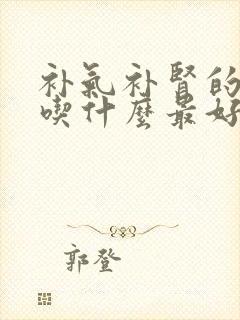 补氣补腎的
喫什麽最好
郭登